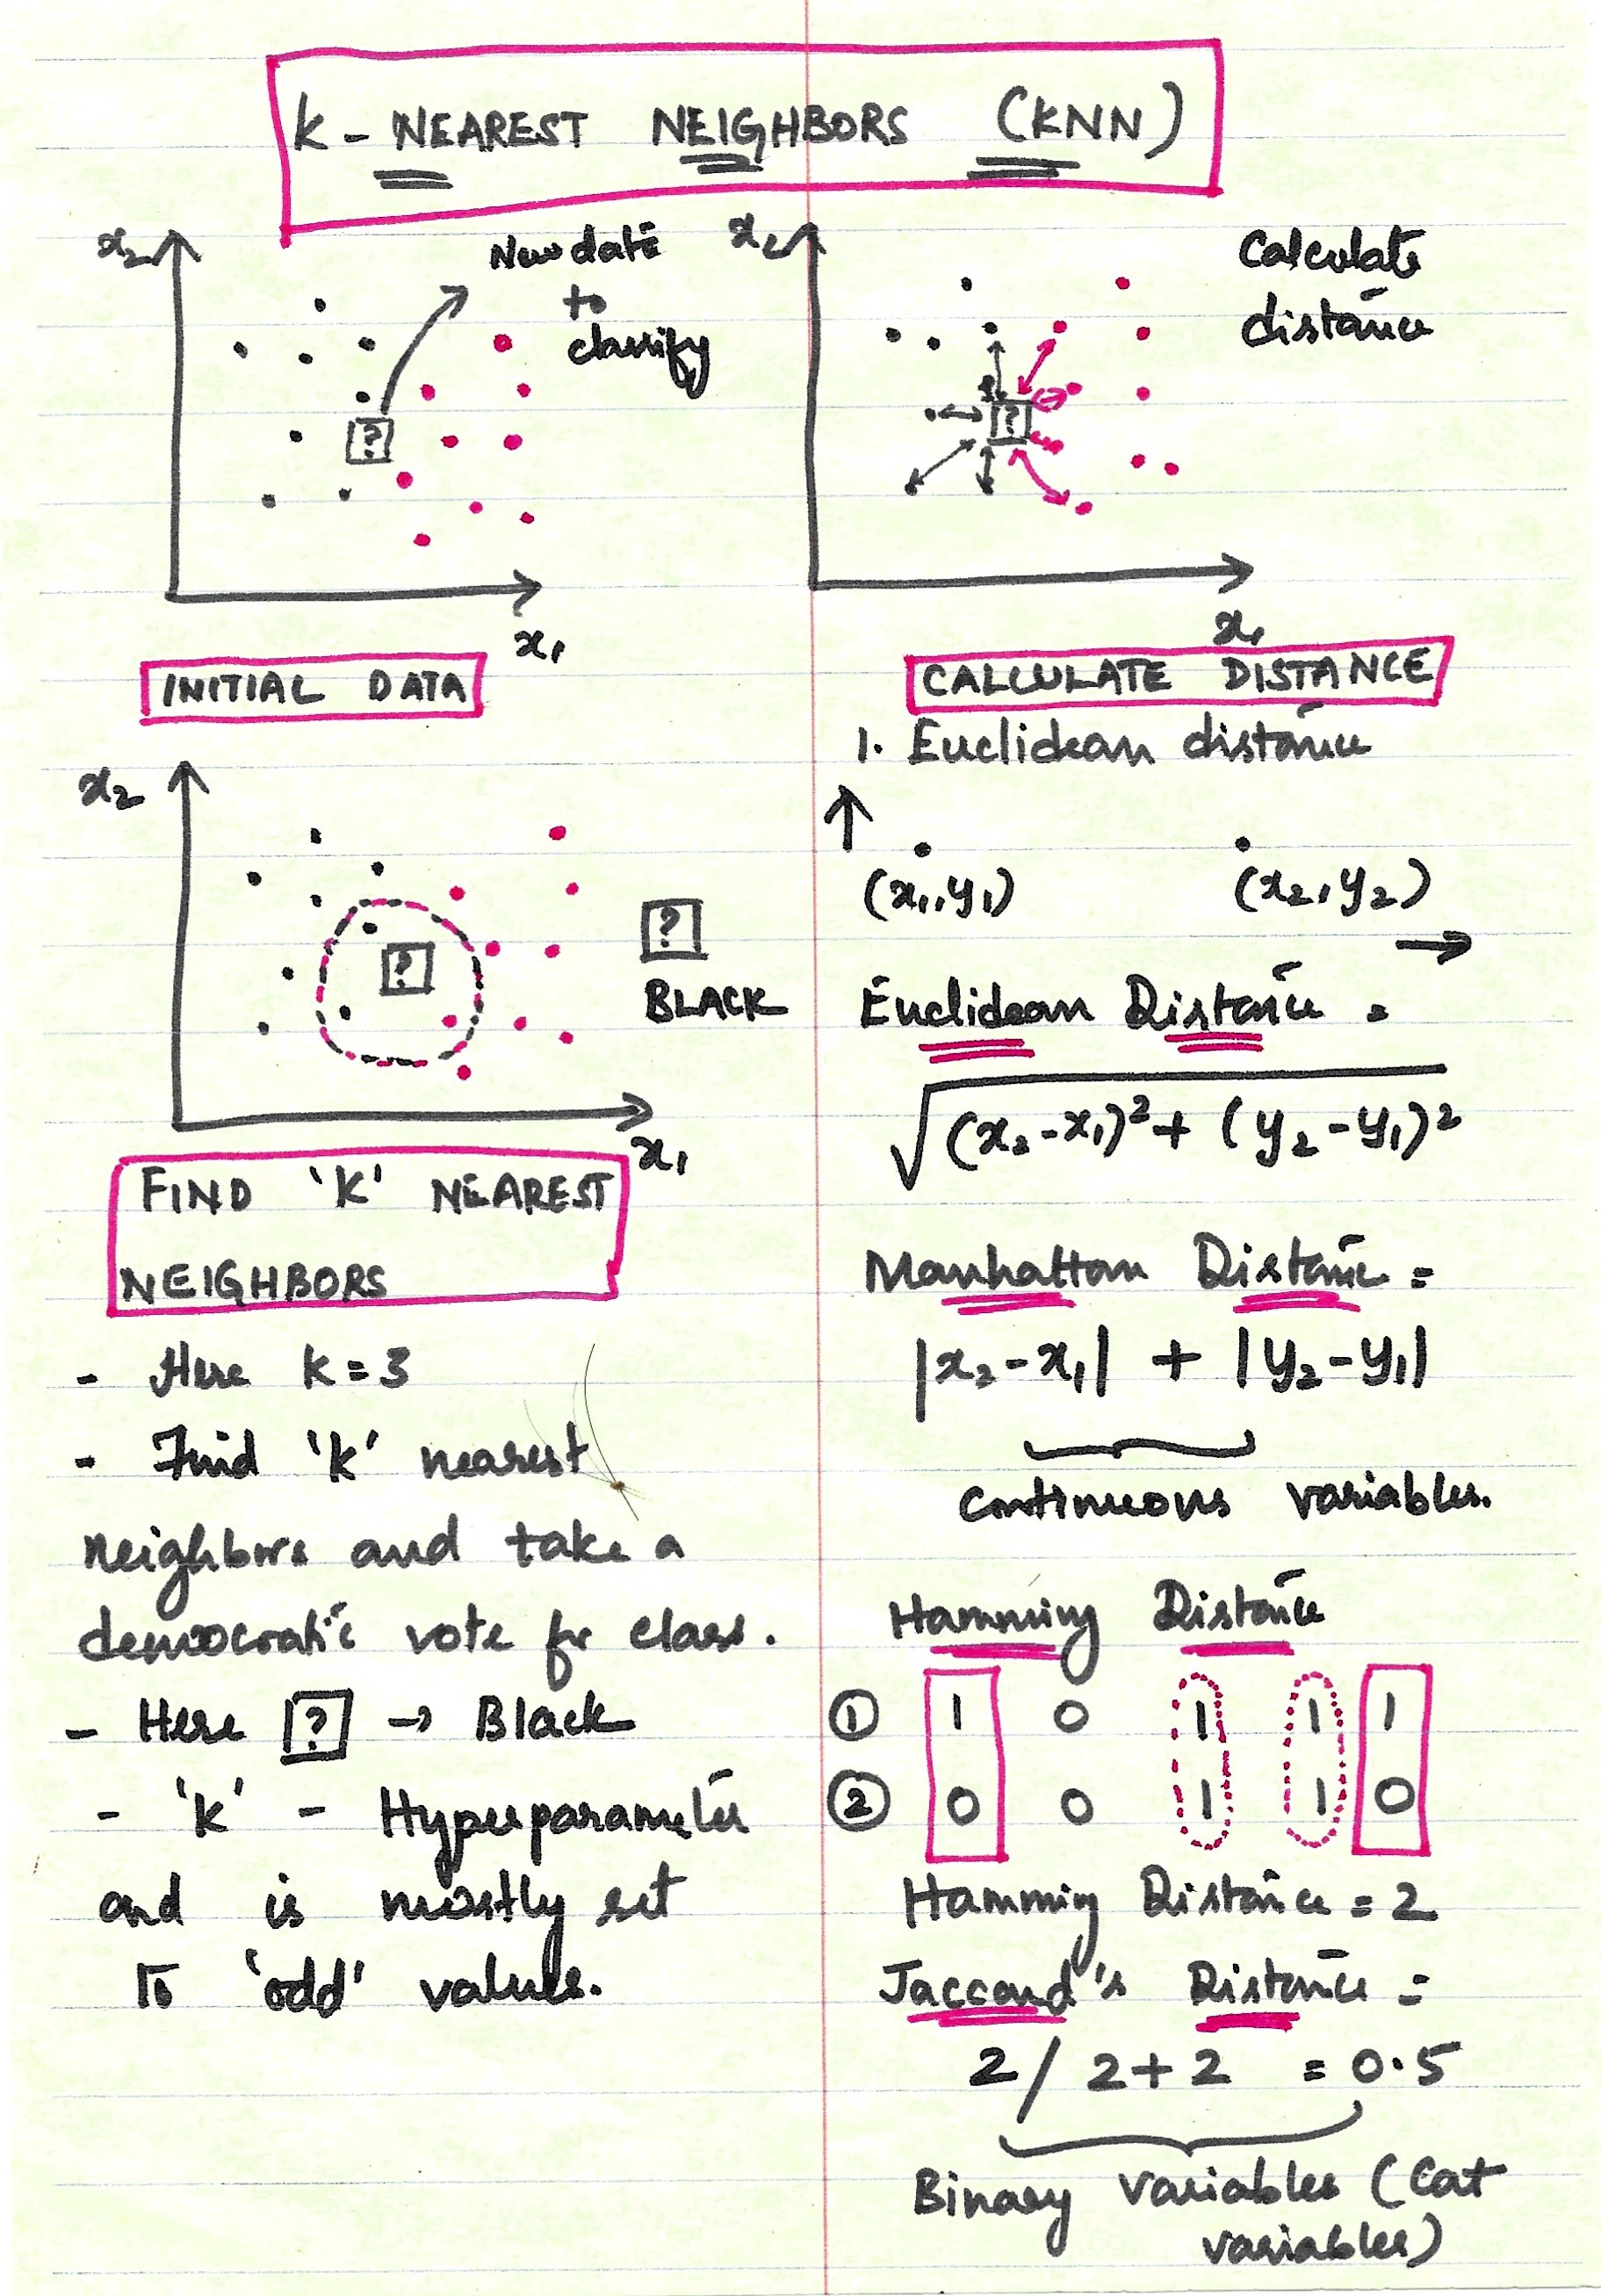 K - NEAREST NEIGHBORS (KNN)
x₂
New data
to
classify
?
x₁
INITIAL DATA
x₂
Calculate
distance
?
x₁
CALCULATE DISTANCE
x₂
?
?
BLACK
x₁
FIND 'K' NEAREST
NEIGHBORS
- Here K = 3
- Find 'K' nearest
neighbors and take a
democratic vote for class.
- Here ? → Black
- 'K' - Hyperparameter
and is mostly set
to 'odd' values.
1. Euclidean distance
(x₁, y₁) (x₂, y₂)
Euclidean Distance =
√(x₂ - x₁)² + (y₂ - y₁)²
Manhattan Distance =
|x₂ - x₁| + |y₂ - y₁|
Continuous variables.
Hamming Distance
① 1 0 1 1 1
② 0 0 1 1 0
Hamming Distance = 2
Jaccard's Distance =
2 / 2 + 2 = 0.5
Binary variables (Cat
variables)